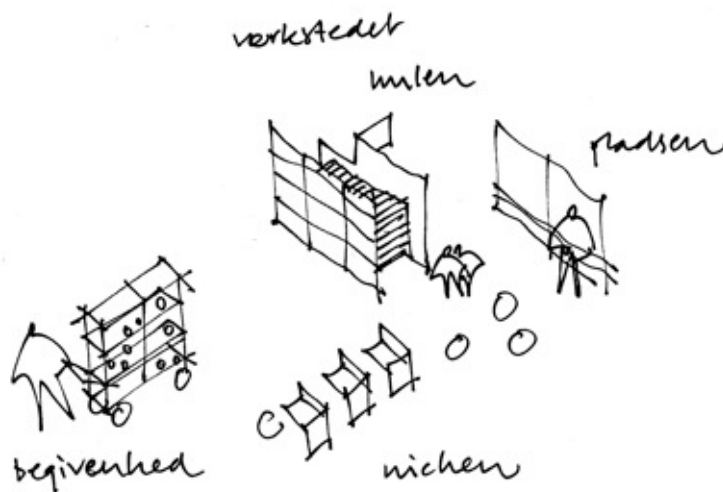 værkstedet
hulen
pladsen
begivenhed
nichen